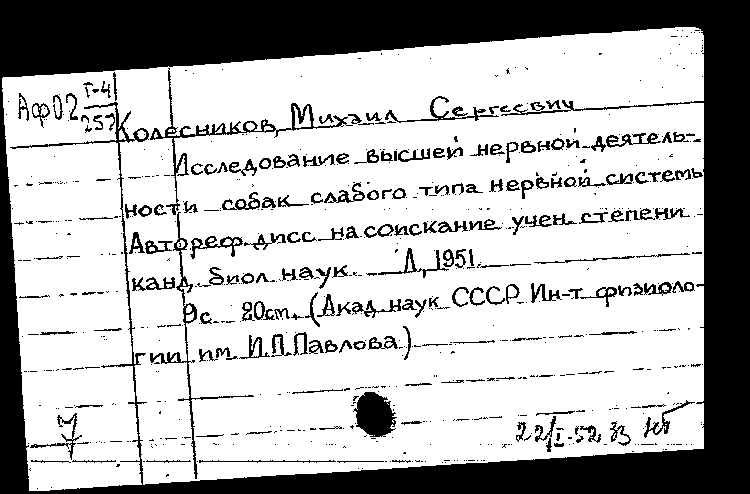 Аф02 I-4
257
Колесников, Михаил Сергеевич
Исследование высшей нервной деятель-
ности собак слабого типа нервной системы
Автореф. дисс. на соискание учен. степени
канд. биол наук. Л, 1951.
9с 20см. (Акад. наук СССР Ин-т физиоло-
гии им И.П.Павлова)
22/I-52